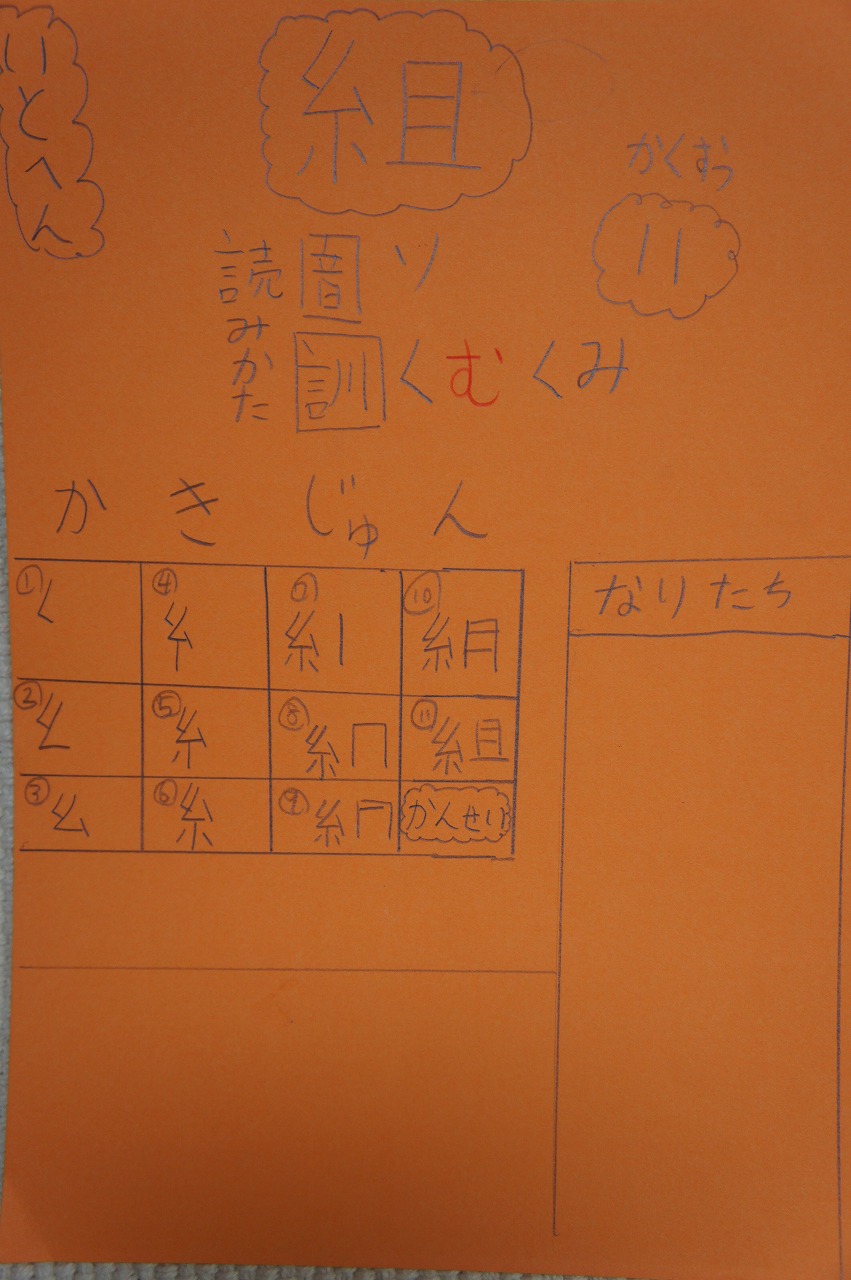 いとへん
組
かくすう
11
読みかた
音 ソ
訓 くむ くみ
かきじゅん
① ④ ⑦ ⑩
② ⑤ ⑧ ⑪ 組
③ ⑥ 糸 ⑨ かんせい
なりたち